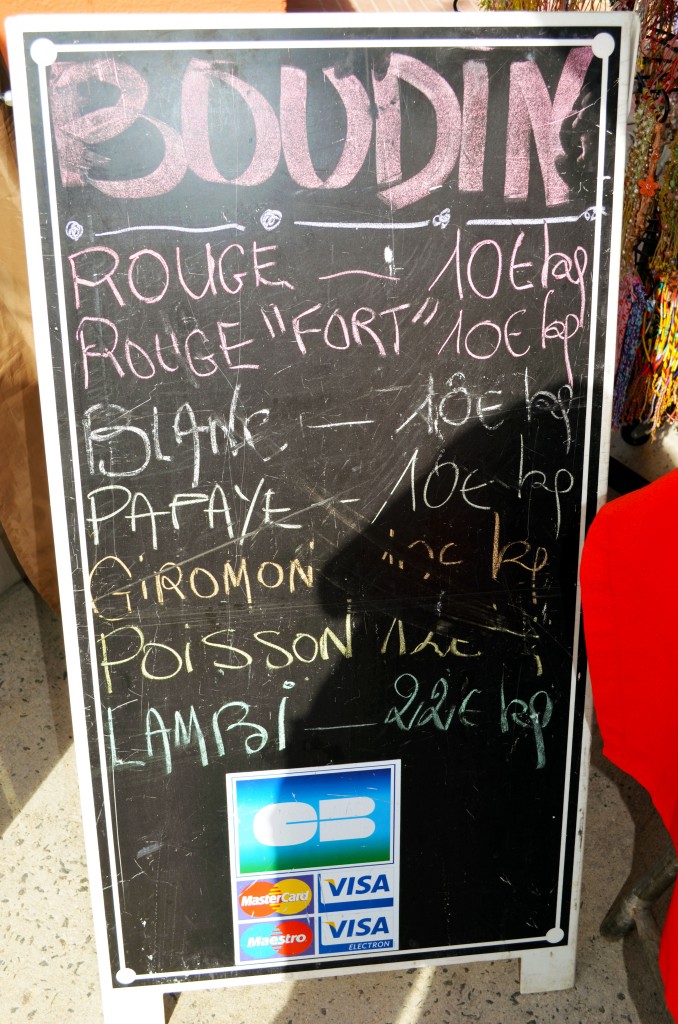 BOUDIN
ROUGE — 10€ kg
ROUGE "FORT" 10€ kg
BLANC — 10€ kg
PAPAYE - 10€ kg
GIROMON kg
POISSON 12€
LAMBI — 22€ kg
CB
MasterCard VISA
Maestro VISA
ELECTRON